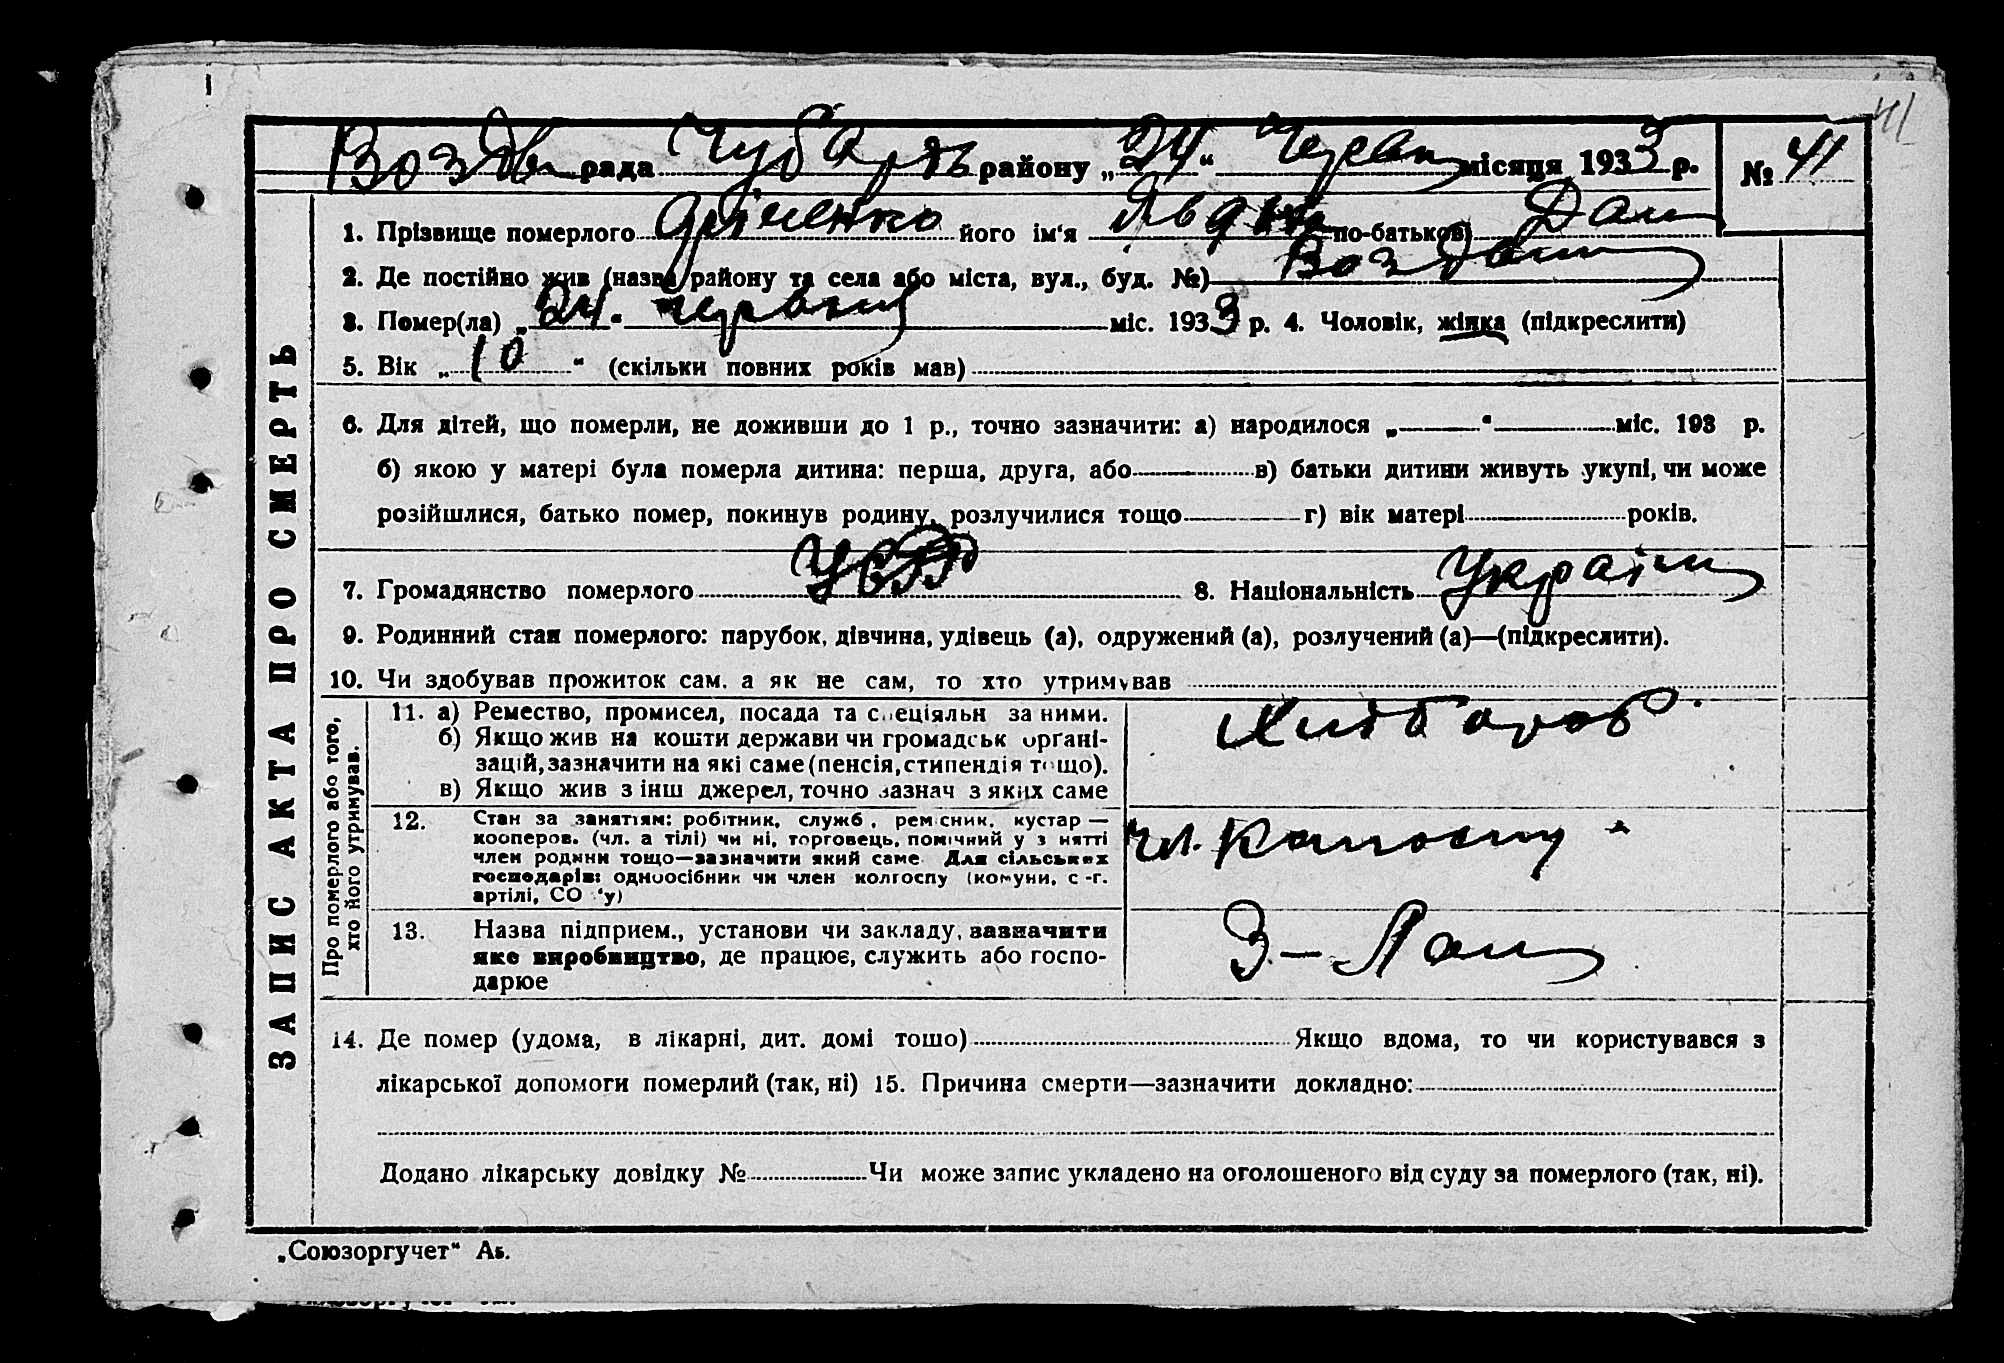 41
Воздв рада Чубарів району „24“ Червн місяця 1933 р. № 41
ЗАПИС АКТА ПРО СМЕРТЬ
1. Прізвище померлого його ім‘я Явдоки по-батькові Дан
2. Де постійно жив (назва району та села або міста, вул., буд. №) Воздвиж
3. Помер(ла) „24“ червня міс. 1933 р. 4. Чоловік, жінка (підкреслити)
5. Вік „10“ (скільки повних років мав)
6. Для дітей, що померли, не доживши до 1 р., точно зазначити: а) народилося „ “ міс. 193 р.
б) якою у матері була померла дитина: перша, друга, або в) батьки дитини живуть укупі, чи може
розійшлися, батько помер, покинув родину, розлучилися тощо г) вік матері років.
7. Громадянство померлого УСРР 8. Національність Україн
9. Родинний стан померлого: парубок, дівчина, удівець (а), одружений (а), розлучений (а)—(підкреслити).
10. Чи здобував прожиток сам, а як не сам, то хто утримував
Про померлого або того, хто його утримував.
11. а) Ремество, промисел, посада та спеціяльн за ними.
б) Якщо жив на кошти держави чи громадськ органі-
зацій, зазначити на які саме (пенсія, стипендія тощо).
в) Якщо жив з інш джерел, точно зазнач з яких саме
Хлібороб
12. Стан за занятіям: робітник, служб, ремісник, кустар —
кооперов. (чл. а тілі) чи ні, торговець, помічний у з нятті
член родини тощо—зазначити який саме Для сільських
господарів: одноосібник чи член колгоспу (комуни, с-г.
артілі, СО ‘у)
чл. колгоспу
13. Назва підприєм., установи чи закладу, зазначити
яке виробництво, де працює, служить або госпо-
дарює
14. Де помер (удома, в лікарні, дит. домі тошо) Якщо вдома, то чи користувався з
лікарської допомоги померлий (так, ні) 15. Причина смерти—зазначити докладно:
Додано лікарську довідку № Чи може запис укладено на оголошеного від суду за померлого (так, ні).
„Союзоргучет“ Аз.